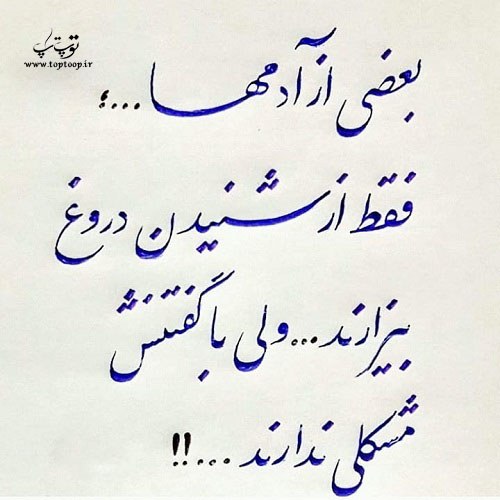 توپ تاپ
www.toptoop.ir
بعضی از آدمها...؛
فقط از شنیدن دروغ
بیزارند...ولی با گفتنش
مشکلی ندارند...!!